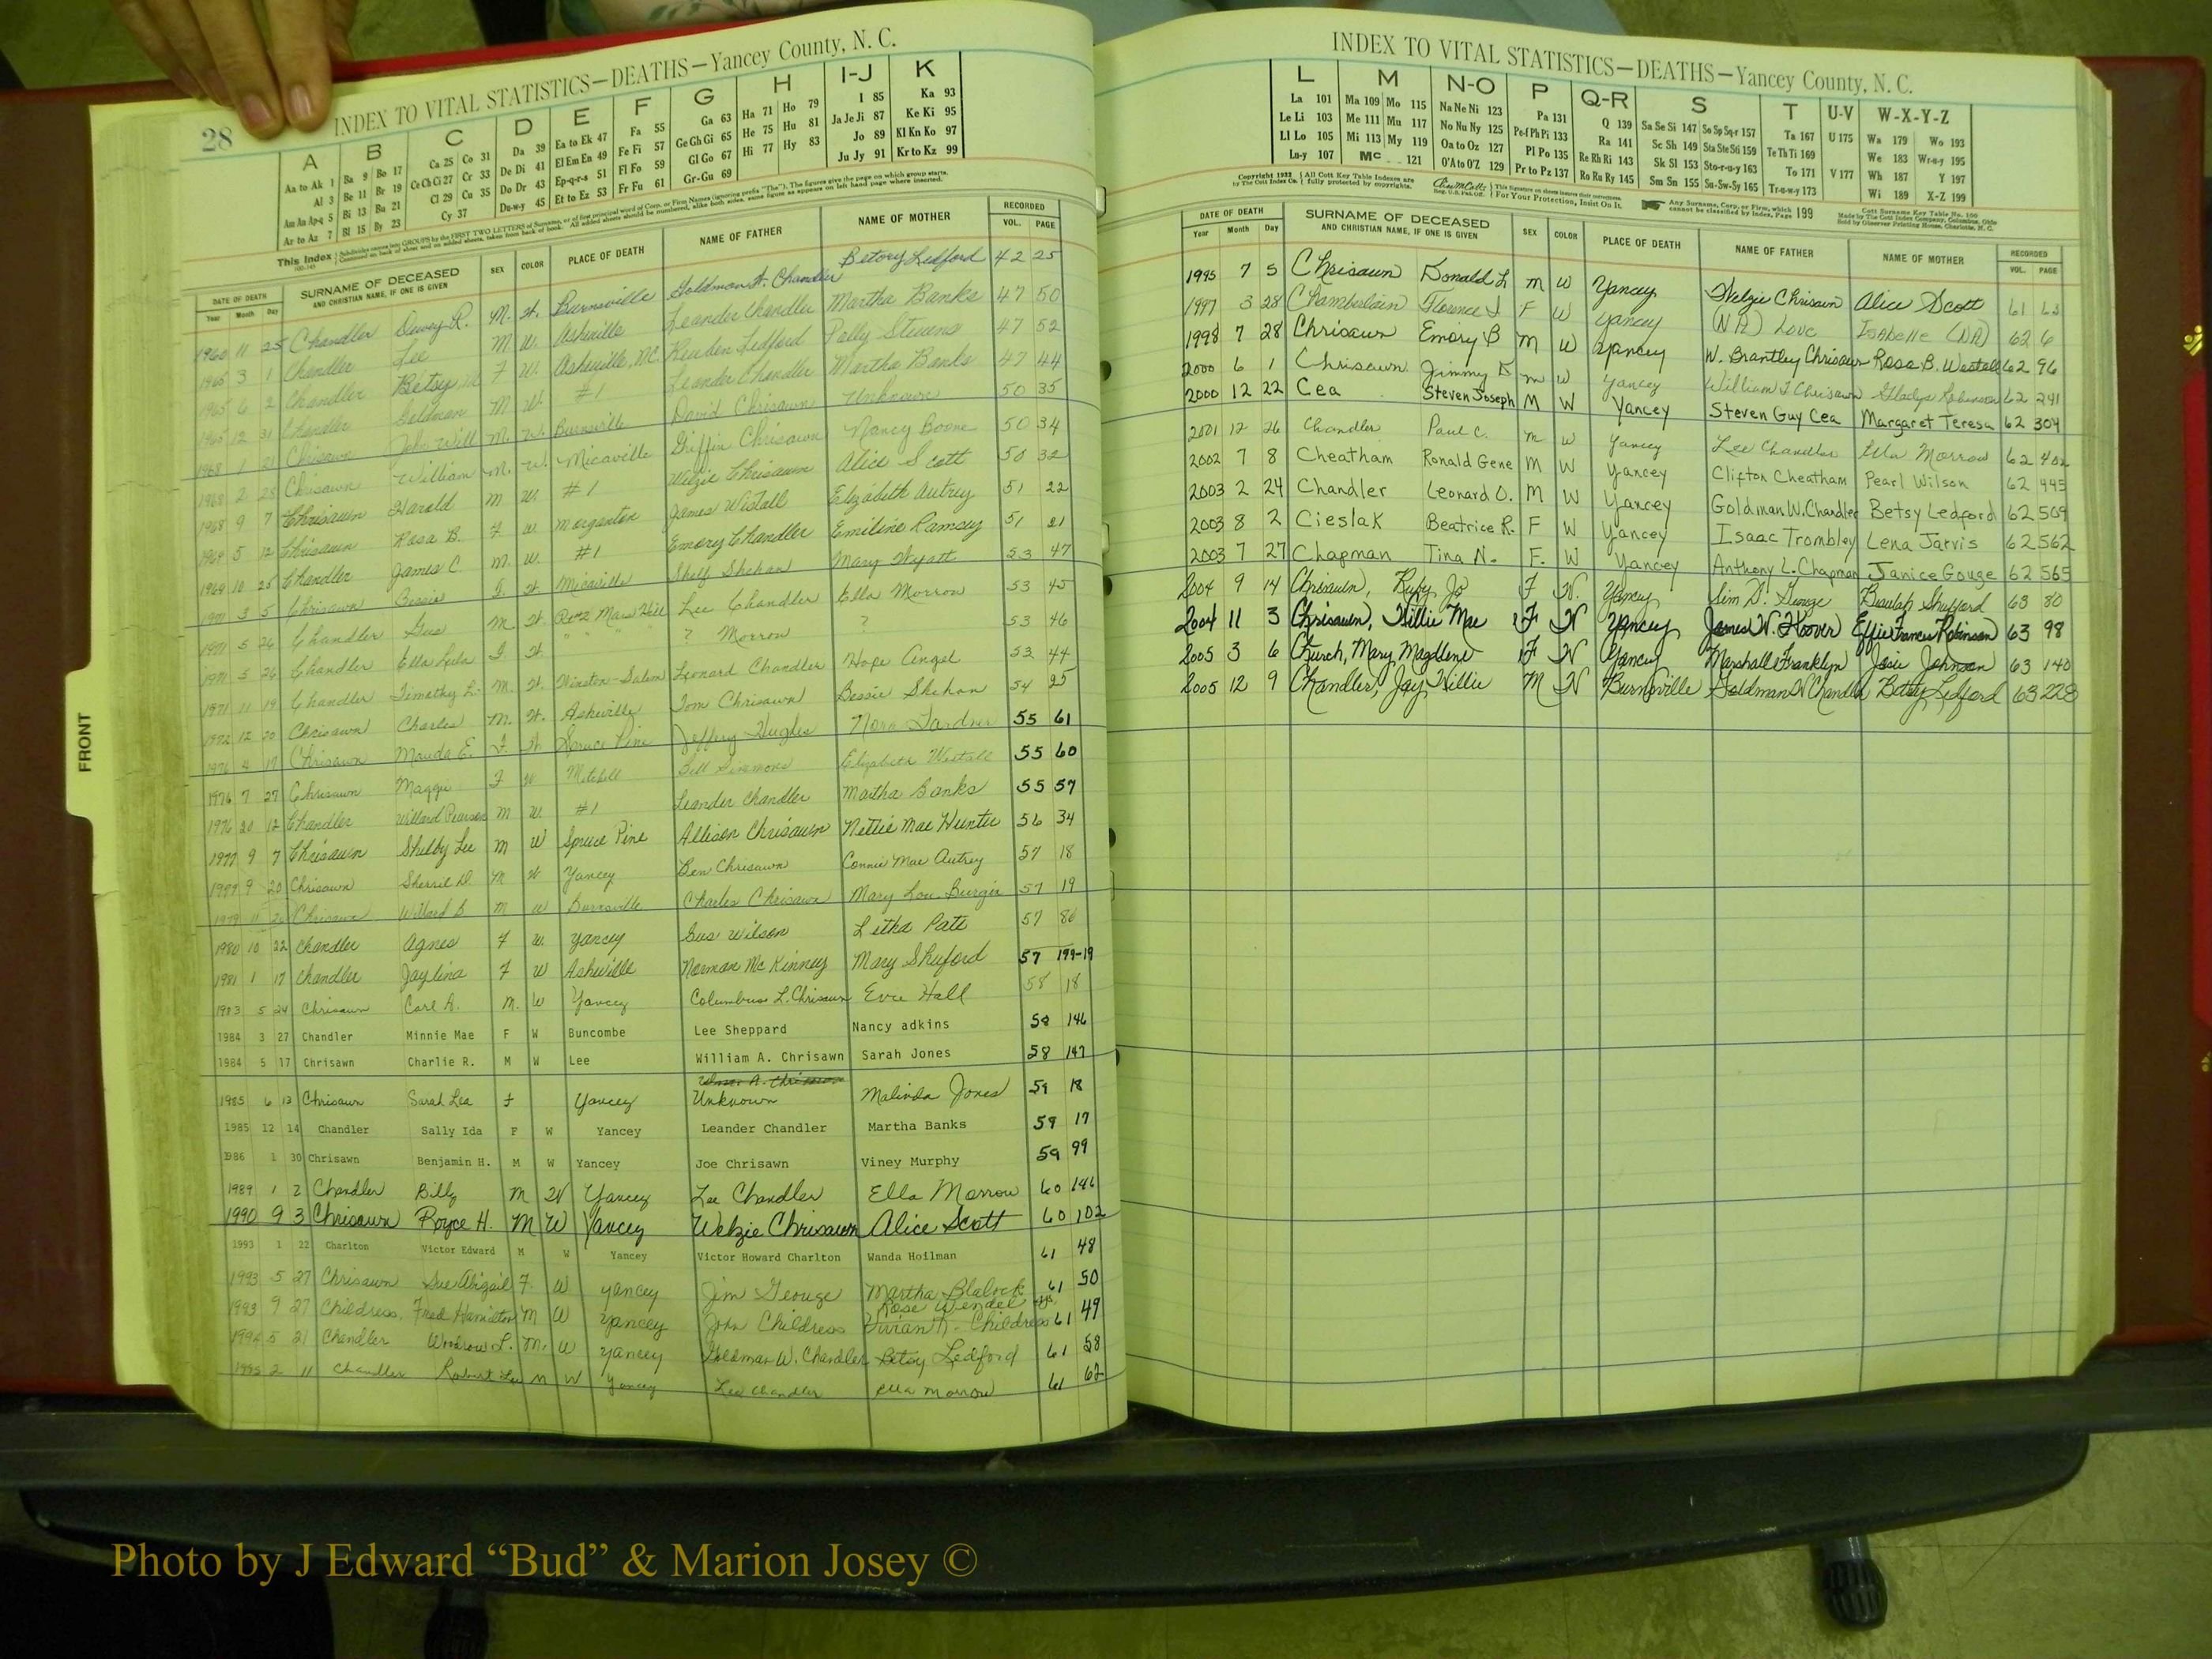 28
INDEX TO VITAL STATISTICS—DEATHS—Yancey County, N. C.
A B C D E F G H I-J K
Aa to Ak 1 Ba 9 Bo 17 Ca 25 Co 31 Da 39 Ea to Ek 47 Fa 55 Ga 63 Ha 71 Ho 79 I 85 Ka 93
Al 3 Be 11 Br 19 Ce Ch Ci 27 Cr 33 De Di 41 El Em En 49 Fe Fi 57 Ge Gh Gi 65 He 75 Hu 81 Ja Je Ji 87 Ke Ki 95
Am An Ap-q 5 Bi 13 Bu 21 Cl 29 Cu 35 Do Dr 43 Ep-q-r-s 51 Fl Fo 59 Gl Go 67 Hi 77 Hy 83 Jo 89 Kl Kn Ko 97
Ar to Az 7 Bl 15 By 23 Cy 37 Du-w-y 45 Et to Ez 53 Fr Fu 61 Gr-Gu 69 Ju Jy 91 Kr to Kz 99
This Index
DATE OF DEATH SURNAME OF DECEASED AND CHRISTIAN NAME, IF ONE IS GIVEN SEX COLOR PLACE OF DEATH NAME OF FATHER NAME OF MOTHER RECORDED
Year Month Day VOL. PAGE
1960 11 25 Chandler Dewey R. M. W. Burnsville Goldmon W. Chandler Betsey Ledford 42 25
1965 3 1 Chandler Lee M W. Asheville Leander Chandler Martha Banks 47 50
1965 6 2 Chandler Betsy M F W. Asheville, NC Reuben Ledford Polly Stevens 47 52
1965 12 31 Chandler Goldman M W #1 Leander Chandler Martha Banks 47 44
1968 1 21 Chrisawn John Will M. W. Burnsville David Chrisawn Unknown 50 35
1968 2 28 Chrisawn William M. W. Micaville Griffin Chrisawn Nancy Boone 50 34
1968 9 7 Chrisawn Harold M W. #1 Welzie Chrisawn Alice Scott 50 32
1969 5 12 Chrisawn Rosa B. F W. Morganton James Westall Elizabeth Autrey 51 22
1969 10 25 Chandler James C. M. W. #1 Emory Chandler Emiline Ramsey 51 21
1971 3 5 Chrisawn Bessie F. W. Micaville Shelf Shehan Mary Wyatt 53 47
1971 5 26 Chandler Gus M. W. Rt 2 Mars Hill Lee Chandler Ella Morrow 53 45
1971 5 26 Chandler Ella Lula F W. " " " ? Morrow ? 53 46
1971 11 19 Chandler Timothy L. M. W. Winston-Salem Leonard Chandler Hope Angel 53 44
1972 12 20 Chrisawn Charles M. W. Asheville Tom Chrisawn Bessie Shehan 54 25
1976 4 17 Chrisawn Maude E. F. W. Spruce Pine Jeffery Hughes Nora Gardner 55 61
1976 7 27 Chrisawn Maggie F W Mitchell Bill Sizemore Elizabeth Westall 55 60
1976 20 12 Chandler Willard Pearson M W. #1 Leander Chandler Martha Banks 55 57
1977 9 7 Chrisawn Shelby Lee M W Spruce Pine Allison Chrisawn Nettie Mae Hunter 56 34
1979 9 20 Chrisawn Sherril D. M W Yancey Ben Chrisawn Connie Mae Autrey 57 18
1979 11 26 Chrisawn Willard B M W Burnsville Charles Chrisawn Mary Lou Burgin 57 19
1980 10 22 Chandler Agnes F W. Yancey Gus Wilson Letha Pate 57 86
1981 1 17 Chandler Jaylina F W Asheville Norman McKinney Mary Shuford 57 199-19
1983 5 24 Chrisawn Carl A. M. W Yancey Columbus L. Chrisawn Evie Hall 58 18
1984 3 27 Chandler Minnie Mae F W Buncombe Lee Sheppard Nancy adkins 58 146
1984 5 17 Chrisawn Charlie R. M W Lee William A. Chrisawn Sarah Jones 58 147
1985 6 13 Chrisawn Sarah Lea F Yancey Unknown Malinda Jones 59 18
1985 12 14 Chandler Sally Ida F W Yancey Leander Chandler Martha Banks 59 17
1986 1 30 Chrisawn Benjamin H. M W Yancey Joe Chrisawn Viney Murphy 59 99
1989 1 2 Chandler Billy M W Yancey Lee Chandler Ella Morrow 60 146
1990 9 3 Chrisawn Royce H. M W Yancey Welzie Chrisawn Alice Scott 60 102
1993 1 22 Charlton Victor Edward M W Yancey Victor Howard Charlton Wanda Hoilman 61 48
1993 5 27 Chrisawn Sue Abigail F. W Yancey Jim George Martha Blalock 61 50
1993 9 27 Childress, Fred Hamilton M W Yancey John Childress Rose Wendel Vivian N. Childress 61 49
1994 5 21 Chandler Woodrow L. M. W Yancey Goldman W. Chandler Betsy Ledford 61 58
1995 2 11 Chandler Robert Lee M W Yancey Lee Chandler Ella Morrow 61 62
FRONT
INDEX TO VITAL STATISTICS—DEATHS—Yancey County, N. C.
L M N-O P Q-R S T U-V W-X-Y-Z
La 101 Ma 109 Mo 115 Na Ne Ni 123 Pa 131 Q 139 Sa Se Si 147 So Sp Sq-r 157 Ta 167 U 175 Wa 179 Wo 193
Le Li 103 Me 111 Mu 117 No Nu Ny 125 Pe-f Ph Pi 133 Ra 141 Sc Sh 149 Sta Ste Sti 159 Te Th Ti 169 V 177 We 183 Wr-u-y 195
Ll Lo 105 Mi 113 My 119 Oa to Oz 127 Pl Po 135 Re Rh Ri 143 Sk Sl 153 Sto-r-u-y 163 To 171 Wh 187 Y 197
Lu-y 107 Mc 121 O'A to O'Z 129 Pr to Pz 137 Ro Ru Ry 145 Sm Sn 155 Su-Sw-Sy 165 Tr-u-w-y 173 Wi 189 X-Z 199
Copyright 1932 by The Cott Index Co. All Cott Key Table Indexes are fully protected by copyrights. For Your Protection, Insist On It. Any Surname, Corp. or Firm, which cannot be classified by index, Page 199
DATE OF DEATH SURNAME OF DECEASED AND CHRISTIAN NAME, IF ONE IS GIVEN SEX COLOR PLACE OF DEATH NAME OF FATHER NAME OF MOTHER RECORDED
Year Month Day VOL. PAGE
1995 7 5 Chrisawn Donald L M W Yancey Welzie Chrisawn Alice Scott 61 63
1997 3 28 Chamberlain Florence I F W Yancey (NA) Love Isabelle (NA) 62 6
1998 7 28 Chrisawn Emory B M W Yancey W. Brantley Chrisawn Rosa B. Westall 62 96
2000 6 1 Chrisawn Jimmy D M W Yancey William T Chrisawn Gladys Robinson 62 241
2000 12 22 Cea Steven Joseph M W Yancey Steven Guy Cea Margaret Teresa 62 304
2001 12 26 Chandler Paul C. M W Yancey Lee Chandler Ella Morrow 62 402
2002 7 8 Cheatham Ronald Gene M W Yancey Clifton Cheatham Pearl Wilson 62 445
2003 2 24 Chandler Leonard O. M W Yancey Goldman W. Chandler Betsy Ledford 62 509
2003 8 2 Cieslak Beatrice R. F W Yancey Isaac Trombley Lena Jarvis 62 562
2003 7 27 Chapman Tina N. F. W Yancey Anthony L. Chapman Janice Gouge 62 565
2004 9 14 Chrisawn, Ruby Jo F W. Yancey Jim D. George Beulah Shufford 63 80
2004 11 3 Chrisawn, Willie Mae F W Yancey James W. Hoover Effie Frances Robinson 63 98
2005 3 6 Church, Mary Magdlene F W Yancey Marshall Franklyn Josie Johnson 63 140
2005 12 9 Chandler, Jay Willie M W Burnsville Goldman W Chandler Betsy Ledford 63 228
Photo by J Edward “Bud” & Marion Josey ©